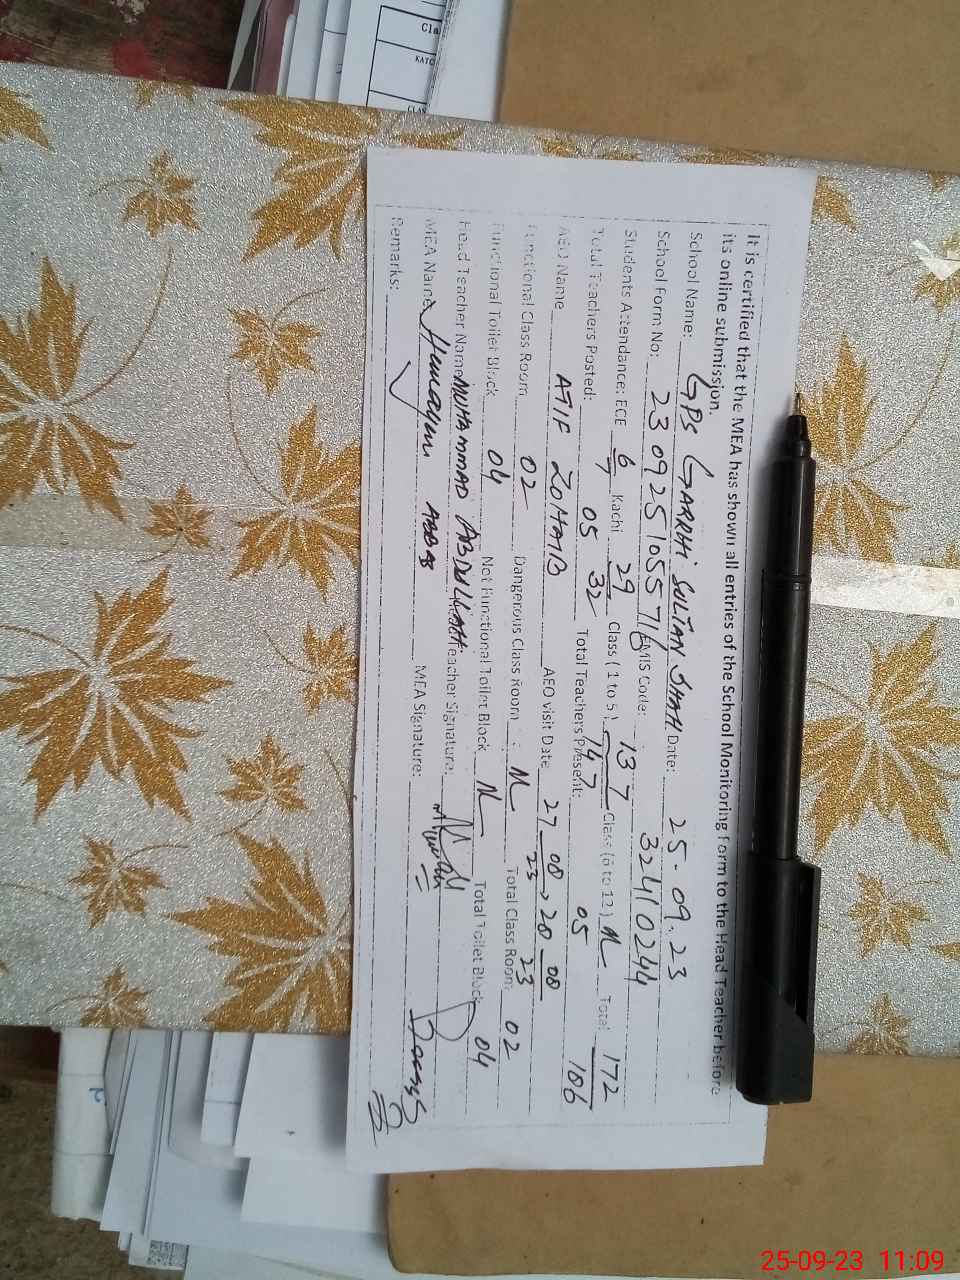 It is certified that the MEA has shown all entries of the School Monitoring Form to the Head Teacher before
its online submission.
School Name: GPS GARRHI SULTAN SHAH Date: 25-09-23
School Form No: 23092510557 EMIS Code: 32410244
Students Attendance: ECE 6/7 Kachi 29/32 Class (1 to 5) 137/147 Class (6 to 12) N Total 172/186
Total Teachers Posted: 05 Total Teachers Present: 05
AEO Name ATIF ZOHAIB AEO visit Date 27-08-23, 20-08-23
Functional Class Room 02 Dangerous Class Room : N Total Class Room 02
Functional Toilet Block 04 Not Functional Toilet Block N Total Toilet Block 04
Head Teacher Name MUHAMMAD ABDULLAH Head Teacher Signature:
MEA Name Humayun ABBAS MEA Signature:
Remarks:
Cla
KATC
CLAS
25-09-23 11:09